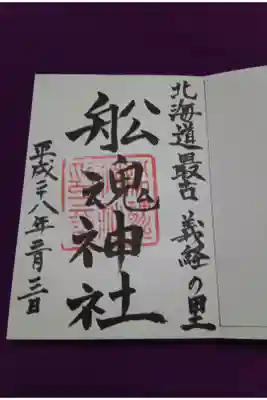 北海道最古 義経の里
舩魂神社
平成二十八年二月三日